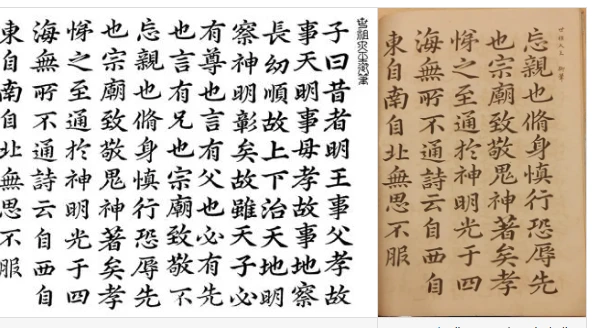 子曰昔者明王事父孝故
事天明事母孝故事地察
長幼順故上下治天地明
察神明彰矣故雖天子必
有尊也言有父也必有先
也言有兄也宗廟致敬不
忘親也脩身慎行恐辱先
也宗廟致敬鬼神著矣孝
悌之至通於神明光于四
海無所不通詩云自西自
東自南自北無思不服
忘親也脩身慎行恐辱先
也宗廟致敬鬼神著矣孝
悌之至通於神明光于四
海無所不通詩云自西自
東自南自北無思不服